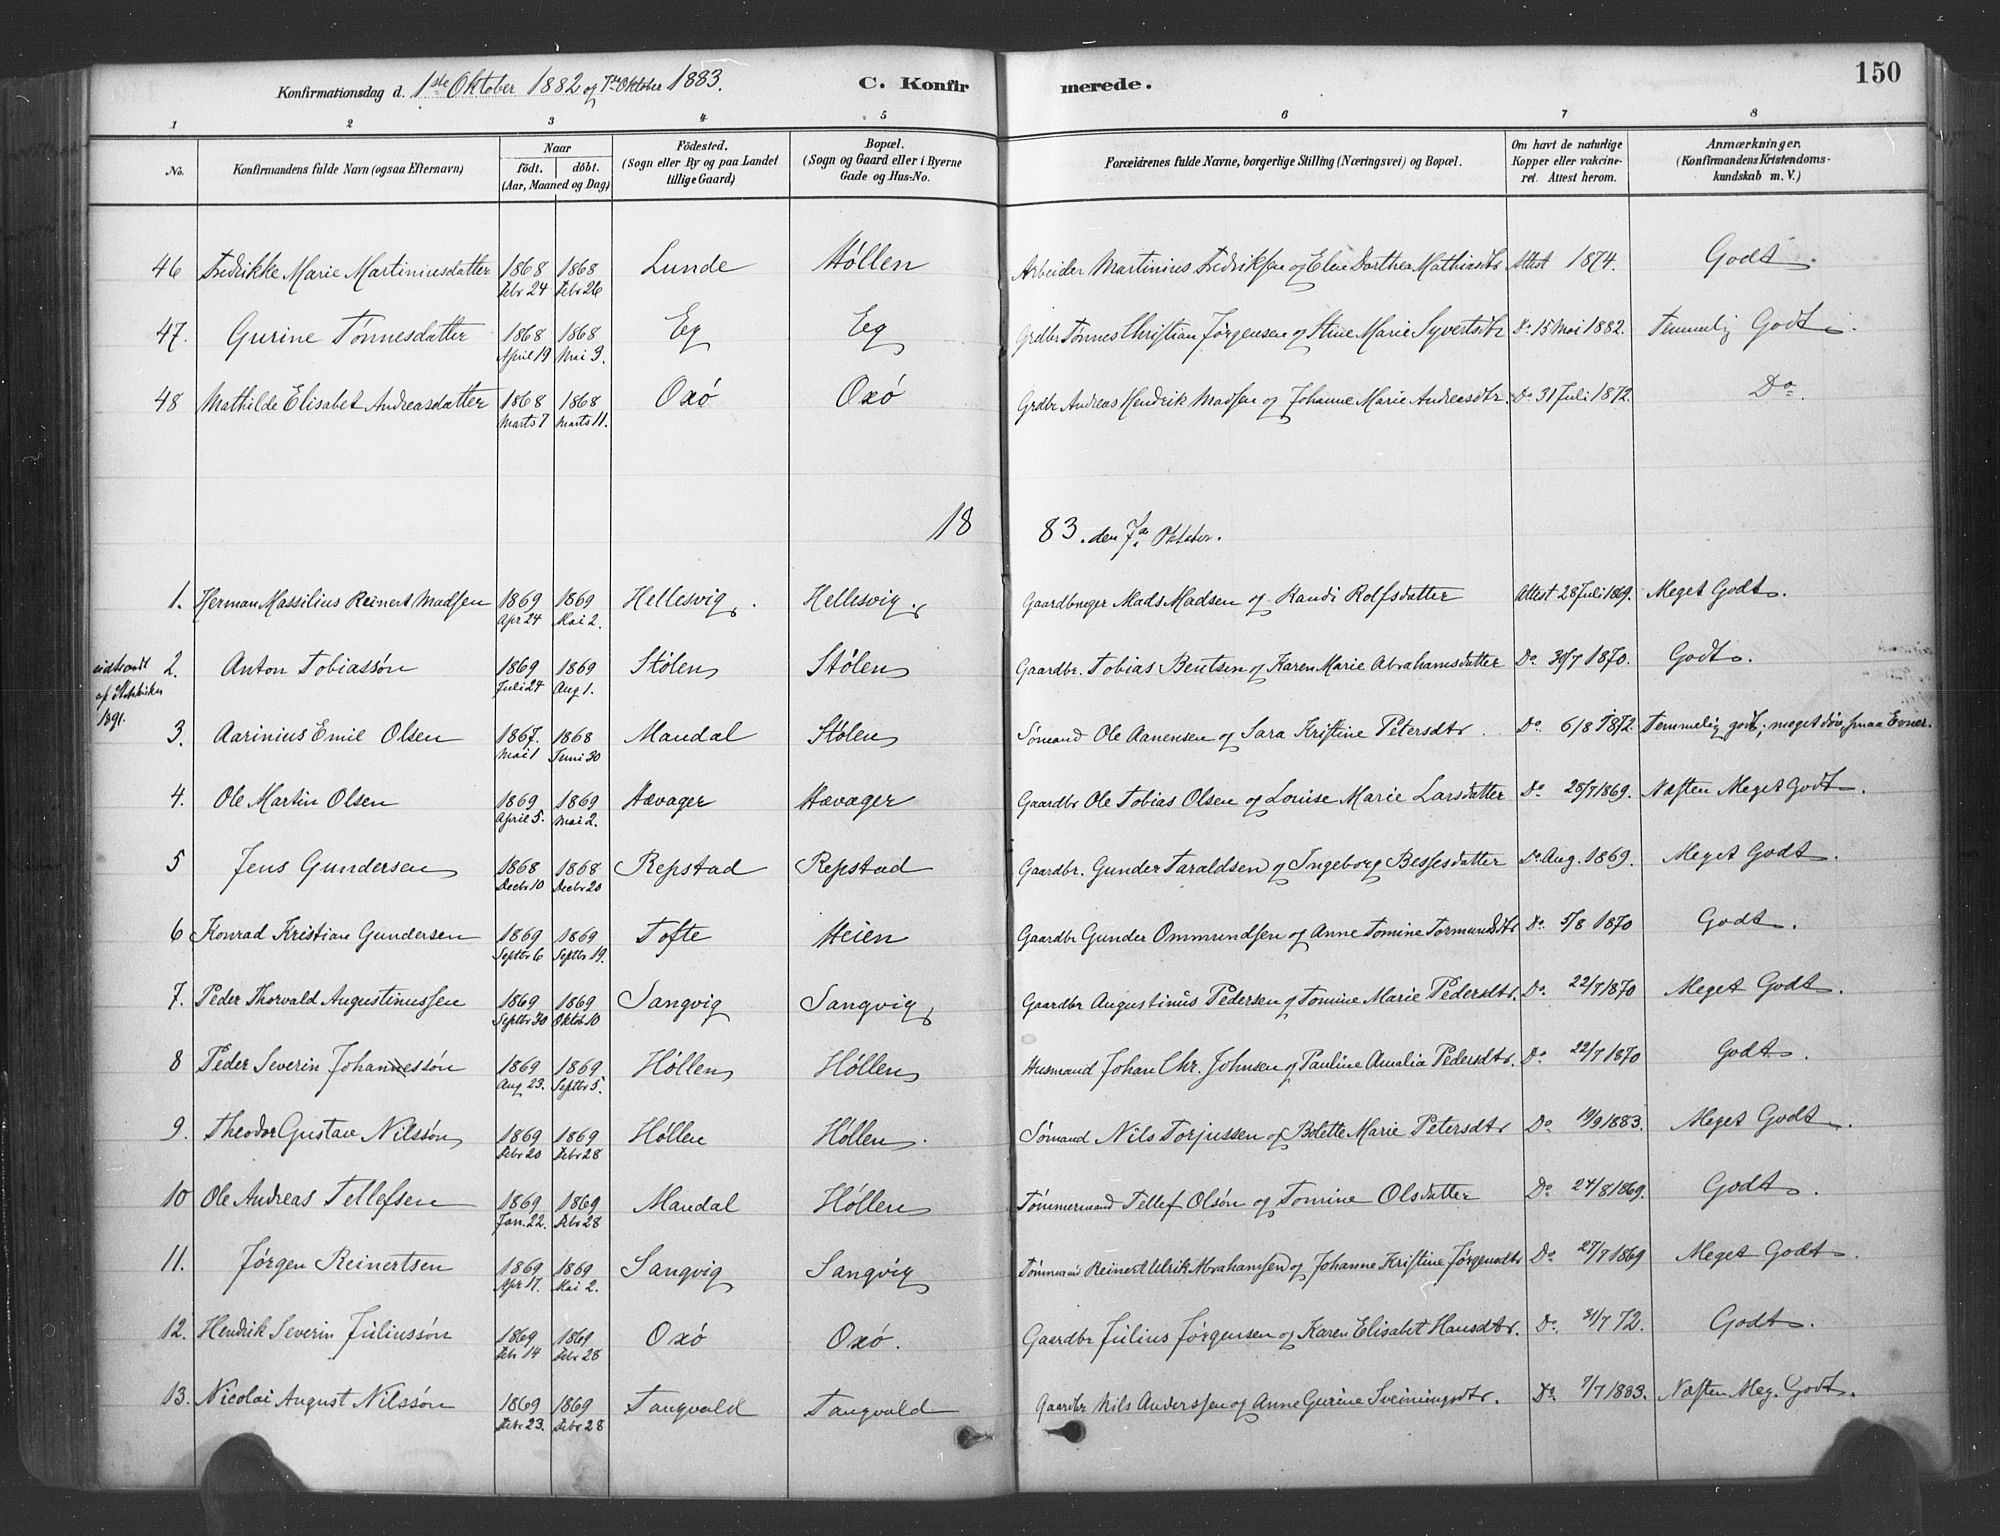 150
Konfirmationsdag d. 1ste Oktober 1882 og 7de Oktober 1883. C. Konfirmerede.
1 2 3 4 5 6 7 8
No. Konfirmandens fulde Navn (ogsaa Efternavn) Naar født. døbt. (Aar, Maaned og Dag) Fødested. (Sogn eller By og paa Landet tillige Gaard) Bopæl. (Sogn og Gaard eller i Byerne Gade og Hus-No. Forældrenes fulde Navne, borgerlige Stilling (Næringsvei) og Bopæl. Om havt de naturlige Kopper eller vakcineret. Attest herom. Anmærkninger. (Konfirmandens Kristendomskundskab m. V.)
46 Fredrikke Marie Martiniusdatter 1868 Febr 24 1868 Febr 26 Lunde Høllen Arbeider Martinius Fredriksen og Elen Dorthea Mathiasdtr Attest 1874. Godt.
47. Gurine Tønnesdatter 1868 April 19 1868 Mai 3. Eg Eeg Grdbr Tønnes Christian Jørgensen og Stine Marie Syvertsdtr Do 15 Mai 1882. Temmelig Godt.
48 Mathilde Elisabet Andreasdatter 1868 Marts 7 1868 Marts 11. Oxø Oxø Grdbr Andreas Hendrik Madsen og Johanne Marie Andreasdtr. Do 31 Juli 1872. Do.
1883. den 7de Oktober.
1. Herman Massilius Reinert Madsen 1869 Apr 24 1869 Mai 2. Hellesvig. Hellesvig. Gaardbruger Mads Madsen og Randi Rolfsdatter Attest 28 Juli 1869. Meget Godt.
2. Anton Tobiassøn 1869 Juli 24 1869 Aug 1. Stølen Stølen Gaardbr. Tobias Bentsen og Karen Marie Abrahamsdatter Do 30/7 1870. Godt.
udtraadt af Statskirken 1891.
3. Aarinius Emil Olsen 1867. Mai 1 1868 Juni 30 Mandal Stølen Sømand Ole Aanensen og Sara Kristine Petersdtr. Do 6/8 1872. Temmelig godt; meget døv, smaa Evner.
4. Ole Martin Olsen 1869 April 5. 1869 Mai 2. Hævager Hævager Gaardbr Ole Tobias Olsen og Louise Marie Larsdatter Do 28/7 1869. Næsten Meget Godt.
5 Jens Gundersen 1868 Decbr 10 1868 Decbr 20 Repstad Repstad Gaardbr. Gunder Taraldsen og Ingeborg Bessesdatter Do Aug. 1869. Meget Godt.
6 Konrad Kristian Gundersen 1869 Septbr 6 1869 Septbr 19. Tofte Heien Gaardbr Gunder Ommundsen og Anne Tomine Tormundsdtr Do 5/8 1870 Godt.
7. Peder Thorvald Augustinussen 1869 Septbr 30 1869 Oktob. 10 Sangvig Sangvig Gaardbr Augustinus Pedersen og Tomine Marie Pedersdtr. Do. 22/7 1870 Meget Godt.
8 Peder Severin Johannessøn 1869 Aug 23. 1869 Septbr 5. Høllen Høllen Husmand Johan Chr. Johnsen og Pauline Amalia Pedersdtr. Do 22/7 1870 Godt.
9. Theodor Gustav Nilssøn 1869 Febr 20 1869 Febr 28 Høllen Høllen. Sømand Nils Torjussen og Bolette Marie Petersdtr Do. 19/9 1883. Meget Godt.
10 Ole Andreas Tellefsen 1869 Jan. 22. 1869 Febr 28 Mandal Høllen Tømmermand Tellef Olsøn og Tomine Olsdatter Do. 24/8 1869. Godt.
11. Jørgen Reinertsen 1869 Apr 17. 1869 Mai 2. Sangvig Sangvig Tømmermd Reinert Ulrik Abrahamsen og Johanne Kristine Jørgensdtr Do. 27/7 1869 Meget Godt.
12. Hendrik Severin Juliussøn 1869 Febr 14 1869 Febr 28 Oxø Oxø. Gaardbr Julius Jørgensen og Karen Elisabet Hansdtr. Do. 31/7 72. Godt.
13. Nicolai August Nilssøn 1869 Febr 23. 1869 Febr 28 Tangvald Tangvald Gaardbr Nils Anderssen og Anne Gurine Sveiningsdtr. Do 7/7 1883. Næsten Meg. Godt.